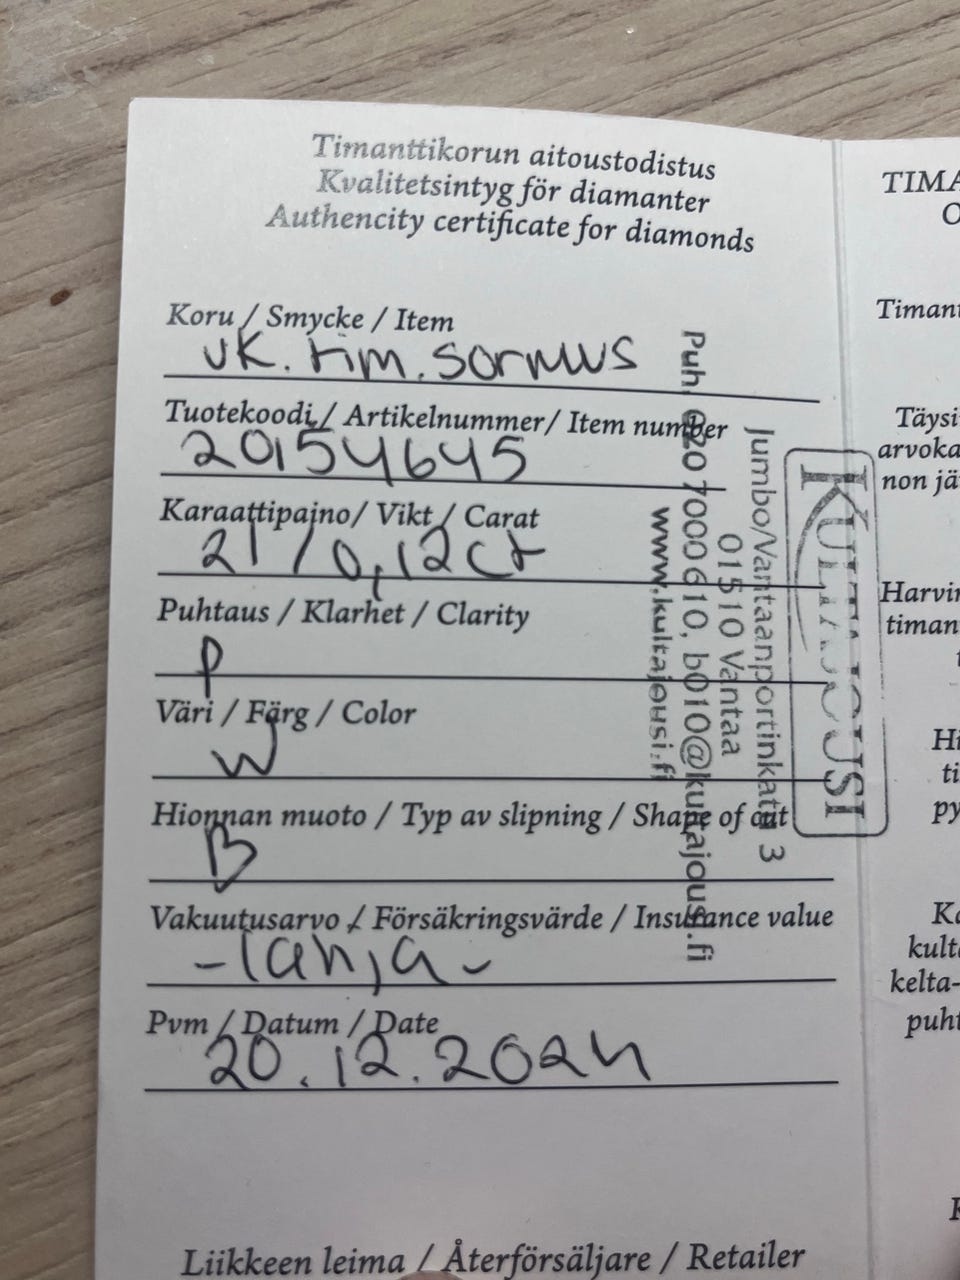 Timanttikorun aitoustodistus
Kvalitetsintyg för diamanter
Authencity certificate for diamonds
Koru / Smycke / Item
vk. tim. sormus
Tuotekoodi / Artikelnummer/ Item number
20154645
Karaattipaino/ Vikt / Carat
21 / 0,12 ct
Puhtaus / Klarhet / Clarity
P
Väri / Färg / Color
W
Hionnan muoto / Typ av slipning / Shape of cut
B
Vakuutusarvo / Försäkringsvärde / Insurance value
- Tanja -
Pvm / Datum / Date
20.12.2024
Liikkeen leima / Återförsäljare / Retailer
KULTAJOUSI
Jumbo/Vantaanportinkatu 3
01510 Vantaa
Puh. 020 7000 610, b010@kultajousi.fi
www.kultajousi.fi
TIMA
O
Timant
Täysi
arvoka
non jä
Harvin
timan
t
Hi
ti
py
Ka
kult
kelta-
puht